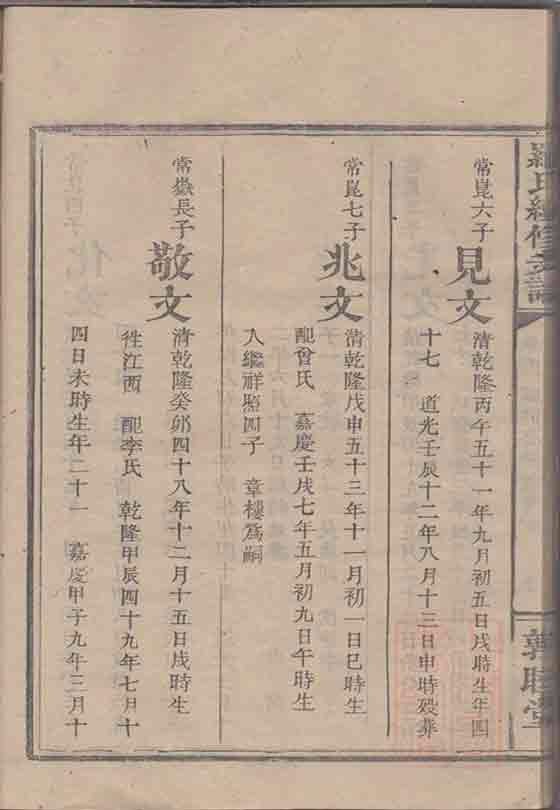 羅氏續修支譜
敦睦堂
常崑六子
見文
清乾隆丙午五十一年九月初五日戌時生年四
十七 道光壬辰十二年八月十三日申時歿葬
常崑七子
兆文
清乾隆戊申五十三年十一月初一日巳時生
配曾氏 嘉慶壬戌七年五月初九日午時生
入繼祥照四子 章樓爲嗣
常嶽長子
敬文
清乾隆癸卯四十八年十二月十五日戌時生
徃江西 配李氏 乾隆甲辰四十九年七月十
四日未時生年二十一 嘉慶甲子九年三月十